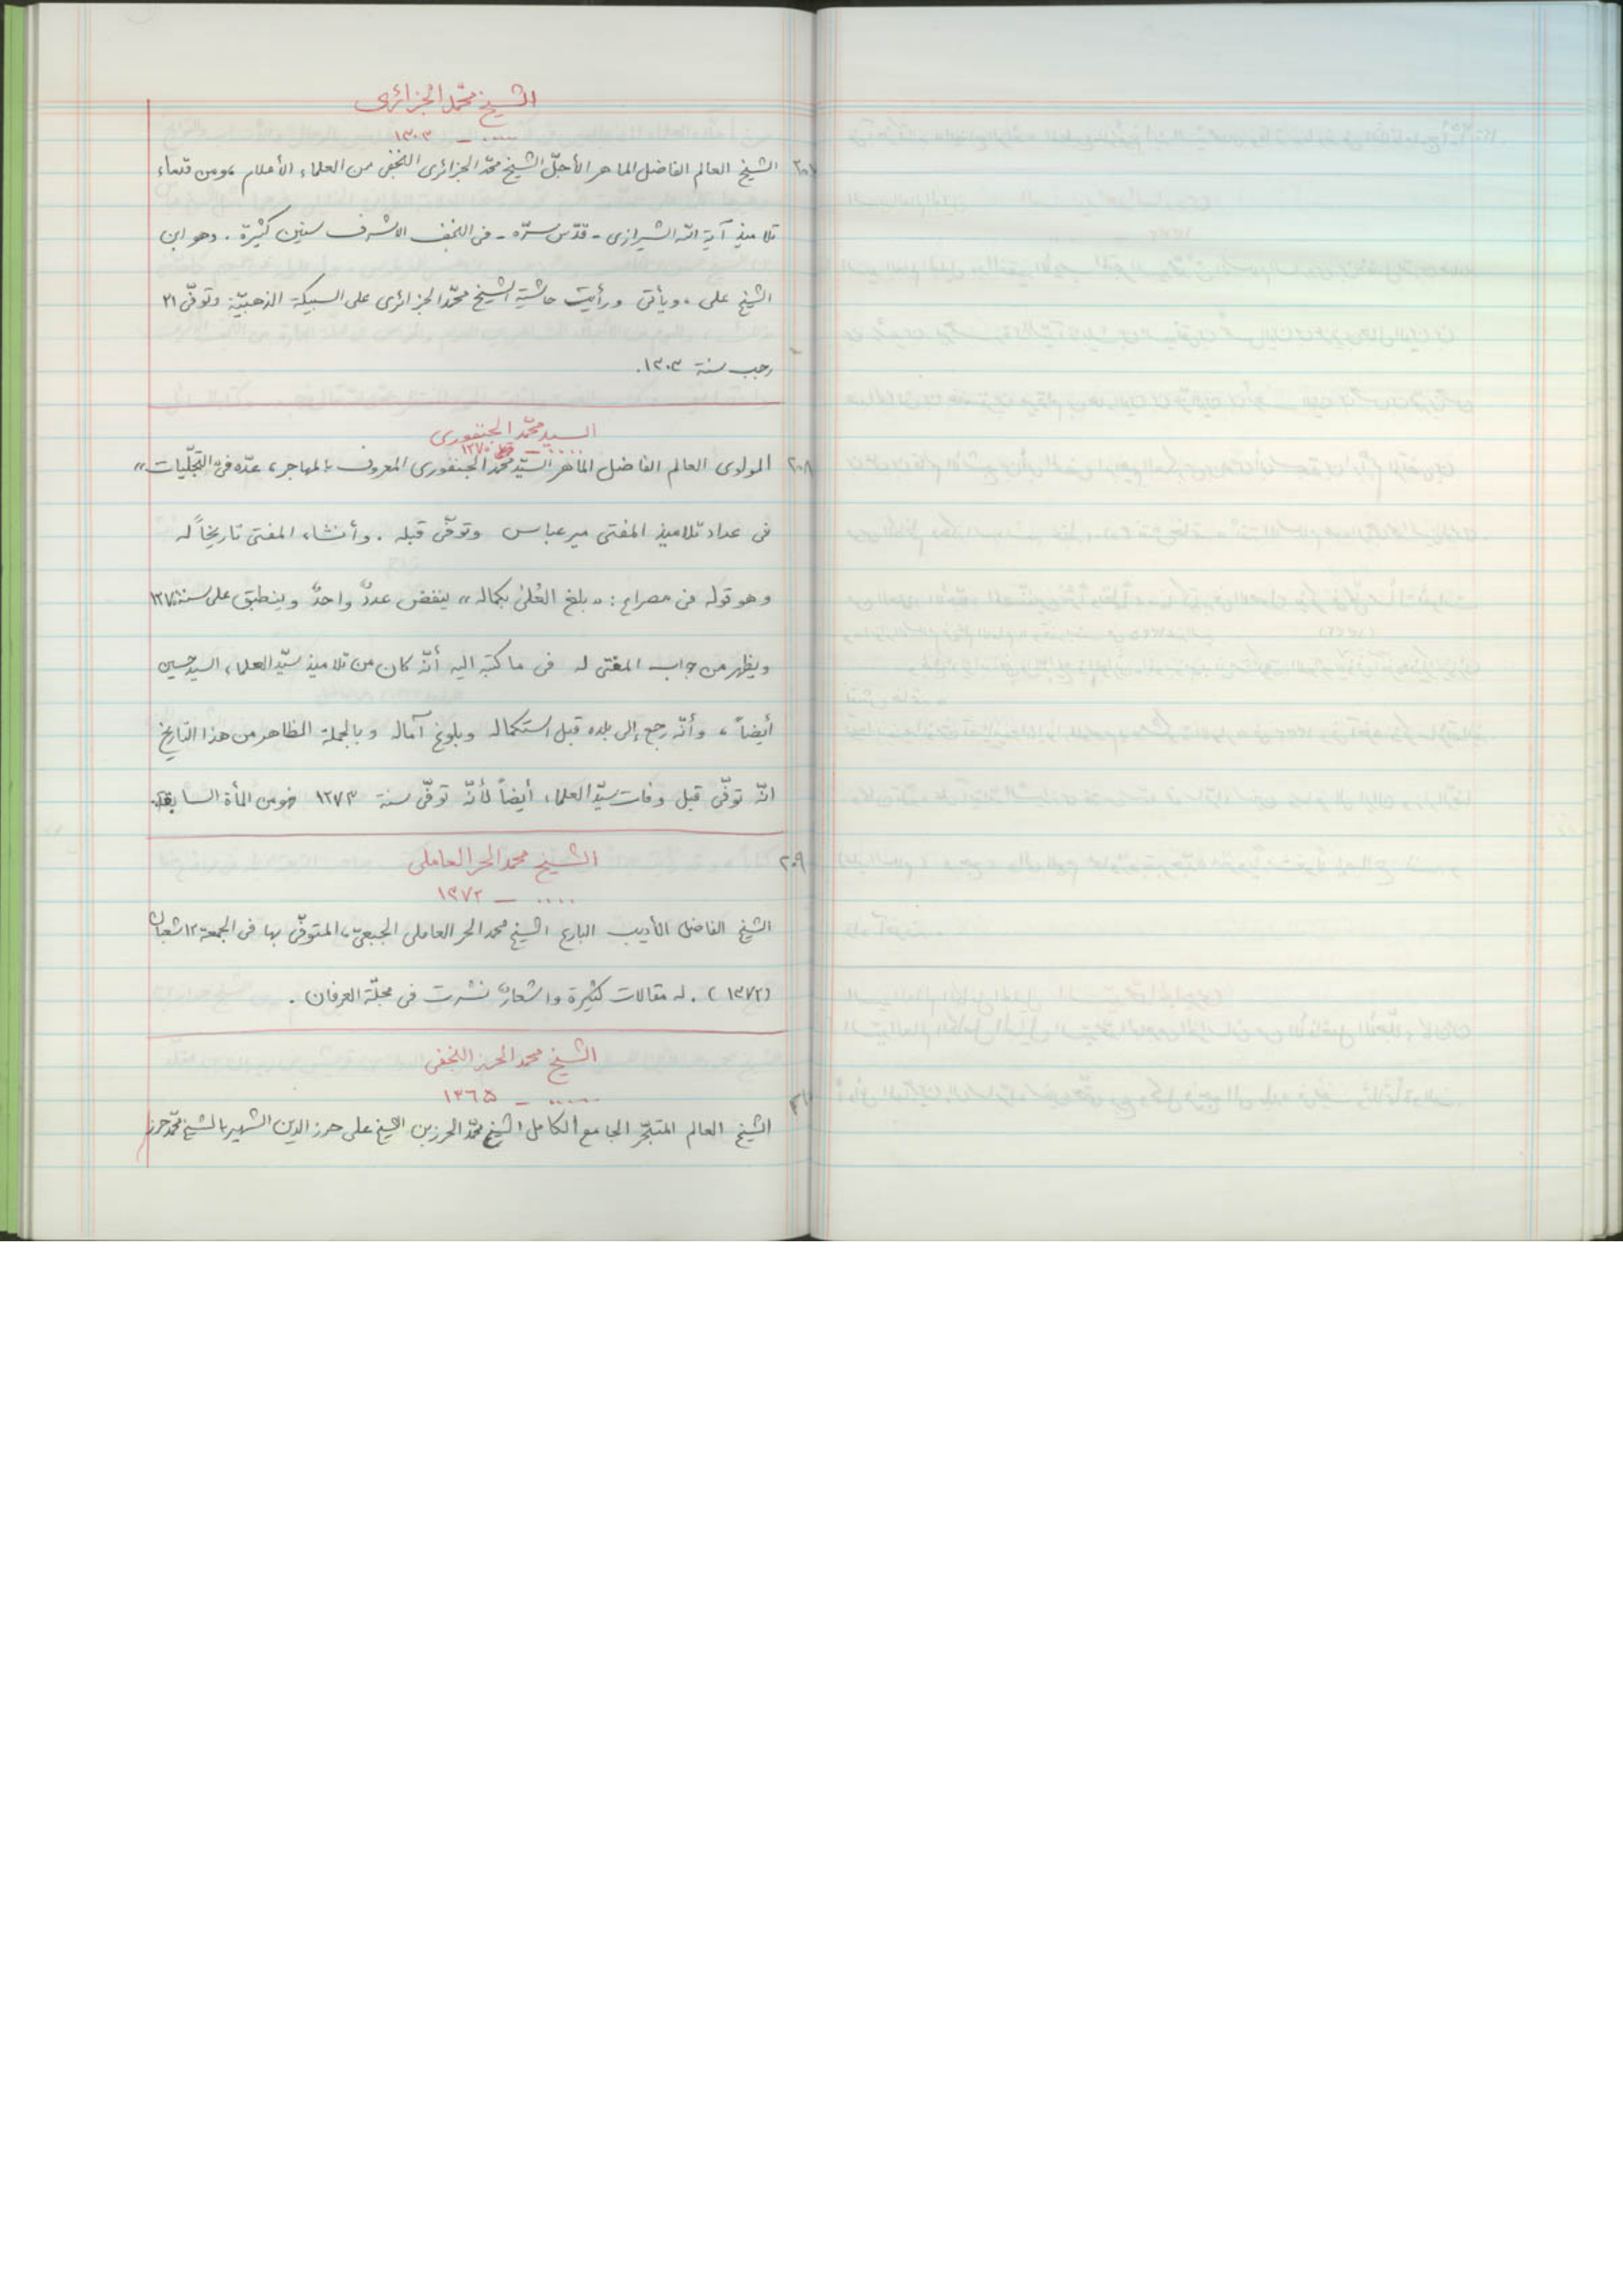 الشيخ محمّد الجزائرى
..... ــ ١٣٠٣
٢٠٧ الشيخ العالم الفاضل الماهر الأجلّ الشيخ محمّد الجزائرى النجفى من العلماء الأعلام ، ومن قدماء
تلاميذ آية الله الشيرازى ـ قدّس سرّه ـ فى النجف الاشرف سنين كثيرة . وهو ابن
الشيخ على ، ويأتى ورأيت حاشية الشيخ محمّد الجزائرى على السبيكة الذهبيّة وتوفّى ٢١
رجب سنة ١٣٠٣.
السيد محمّد الجنفورى
..... ــ ق ١٢٧٠
٢٠٨ المولوى العالم الفاضل الماهر السيّد محمّد الجنفورى المعروف بالمهاجر ، عدّه فى التجلّيات »
فى عداد تلاميذ المفتى مير عباس وتوفّى قبله . وأنشاء المفتى تاريخاً له
وهو قوله فى مصراع : « بلغ العُلىٰ بكماله » ينقص عددٌ واحدٌ وينطبق على سنة ١٢٧٠
ويظهر من جواب المفتى له فى ما كتبه اليه أنّه كان من تلاميذ سيّد العلماء السيد حسين
أيضاً ، وأنّه رجع إلى بلده قبل استكماله وبلوغ آماله وبالجملة الظاهر من هذا التاريخ
انّه توفّى قبل وفات سيّد العلماء أيضاً لأنّه توفّى سنة ١٢٧٣ فهو من المأة السابقة.
٢٠٩ الشيخ محمد الحر العاملى
.... ــ ١٣٧٢
الشيخ الفاضل الأديب البارع الشيخ محمد الحر العاملى الجبعىّ ، المتوفّى بها فى الجمعة ١٢ شعبان
(١٣٧٢) . له مقالات كثيرة واشعارٌ نشرت فى مجلّة العرفان .
الشيخ محمد الحرز النجفى
..... ــ ١٣٦٥
٢١٠ الشيخ العالم المتبحّر الجامع الكامل الشيخ محمّد الحرز بن الشيخ على حرز الدين الشهير بالشيخ محمّد حرز